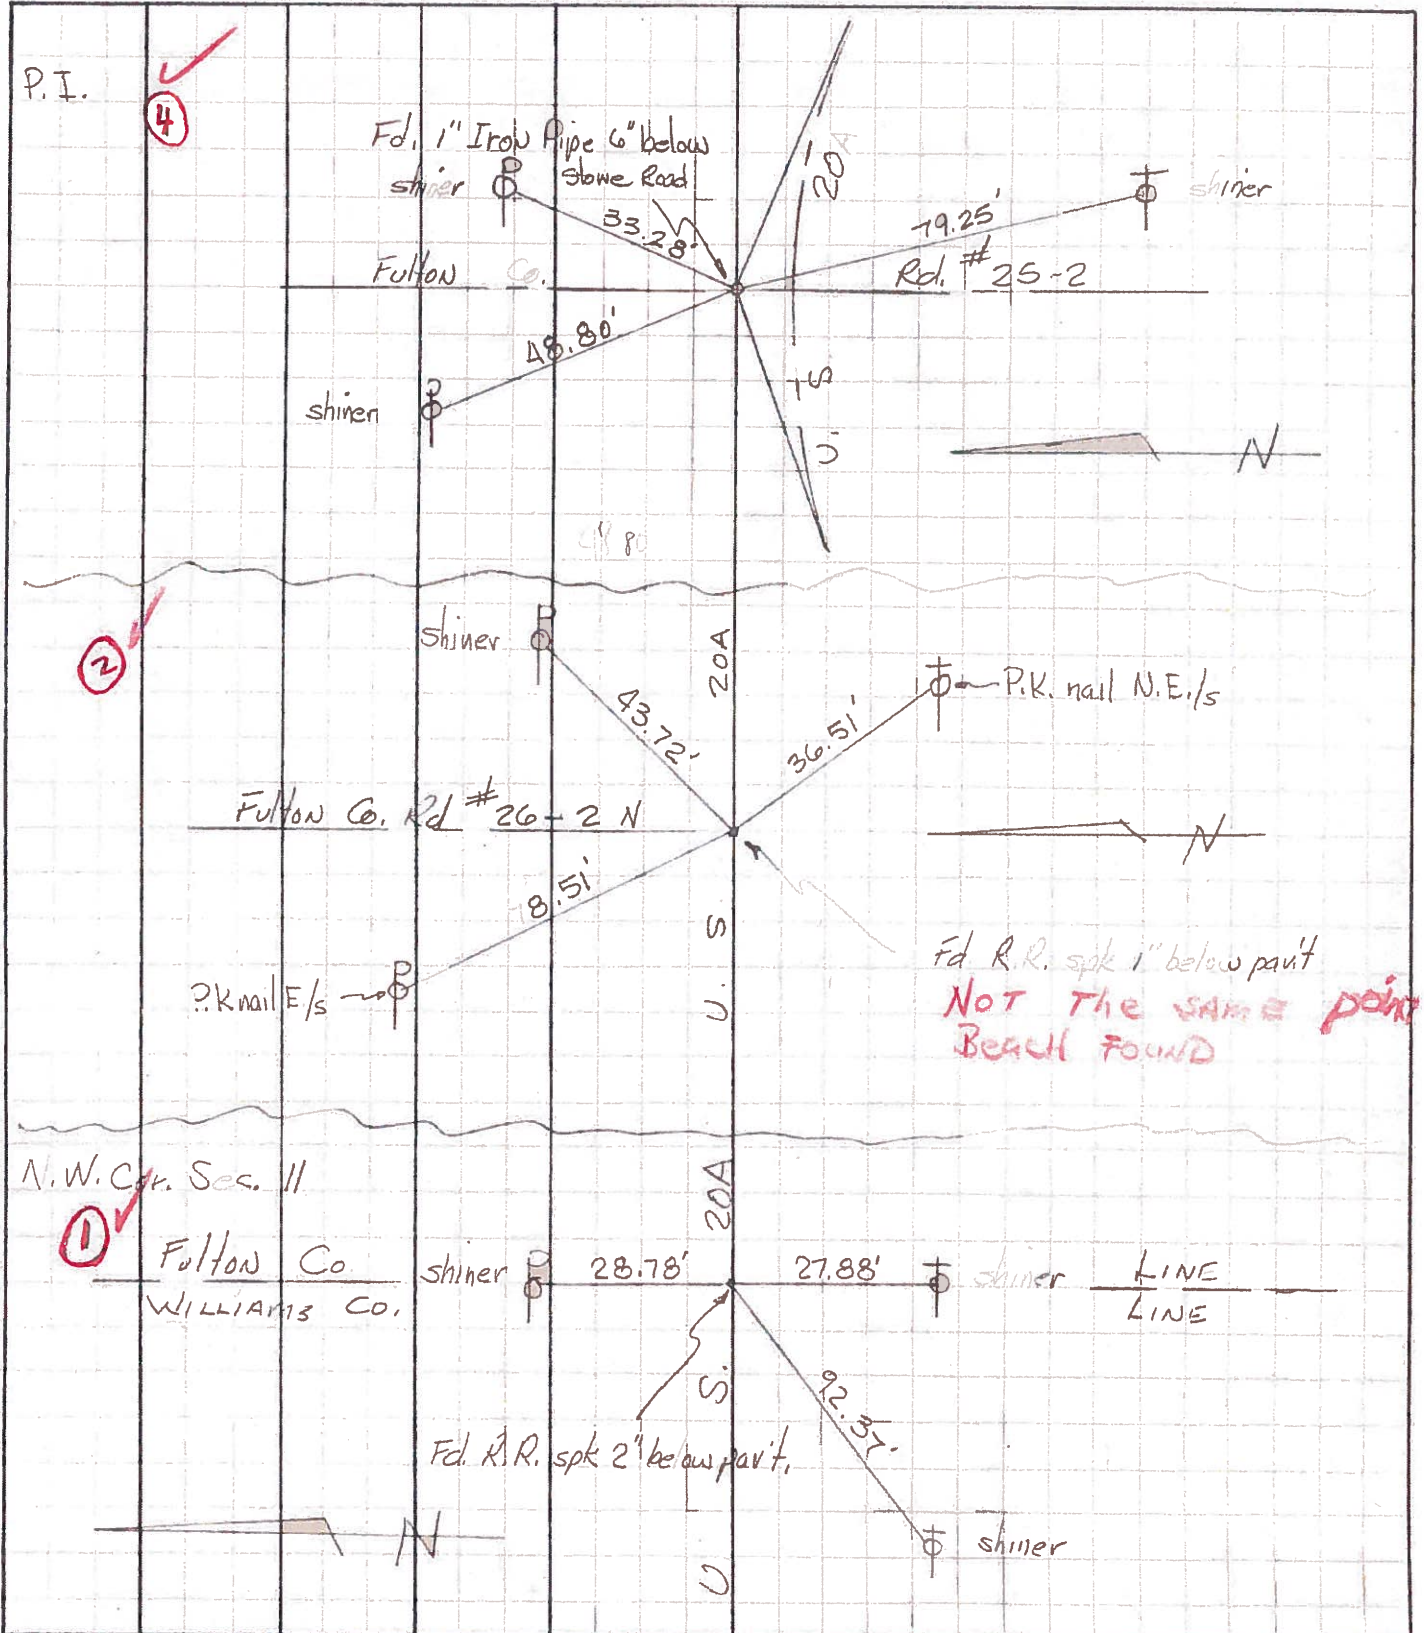 P.I.
4
Fd. 1" Iron Pipe 6" below
Stone Road
shiner
shiner
33.28'
79.25'
20A
Fulton Co.
Rd. #25-2
48.80'
shiner
U.S.
N
2
shiner
20A
43.72'
36.51'
P.K. nail N.E./s
Fulton Co. Rd #26-2 N
N
8.51'
P.K nail E/s
U. S
Fd R.R. spk 1" below pav't
NOT The SAME point
BeacH FOUND
N.W. Cor. Sec. 11
1
20A
Fulton Co
shiner
28.78'
27.88'
shiner
LINE
WILLIAMS CO.
LINE
92.37'
U S.
Fd. R.R. spk 2" below pav't.
N
shiner